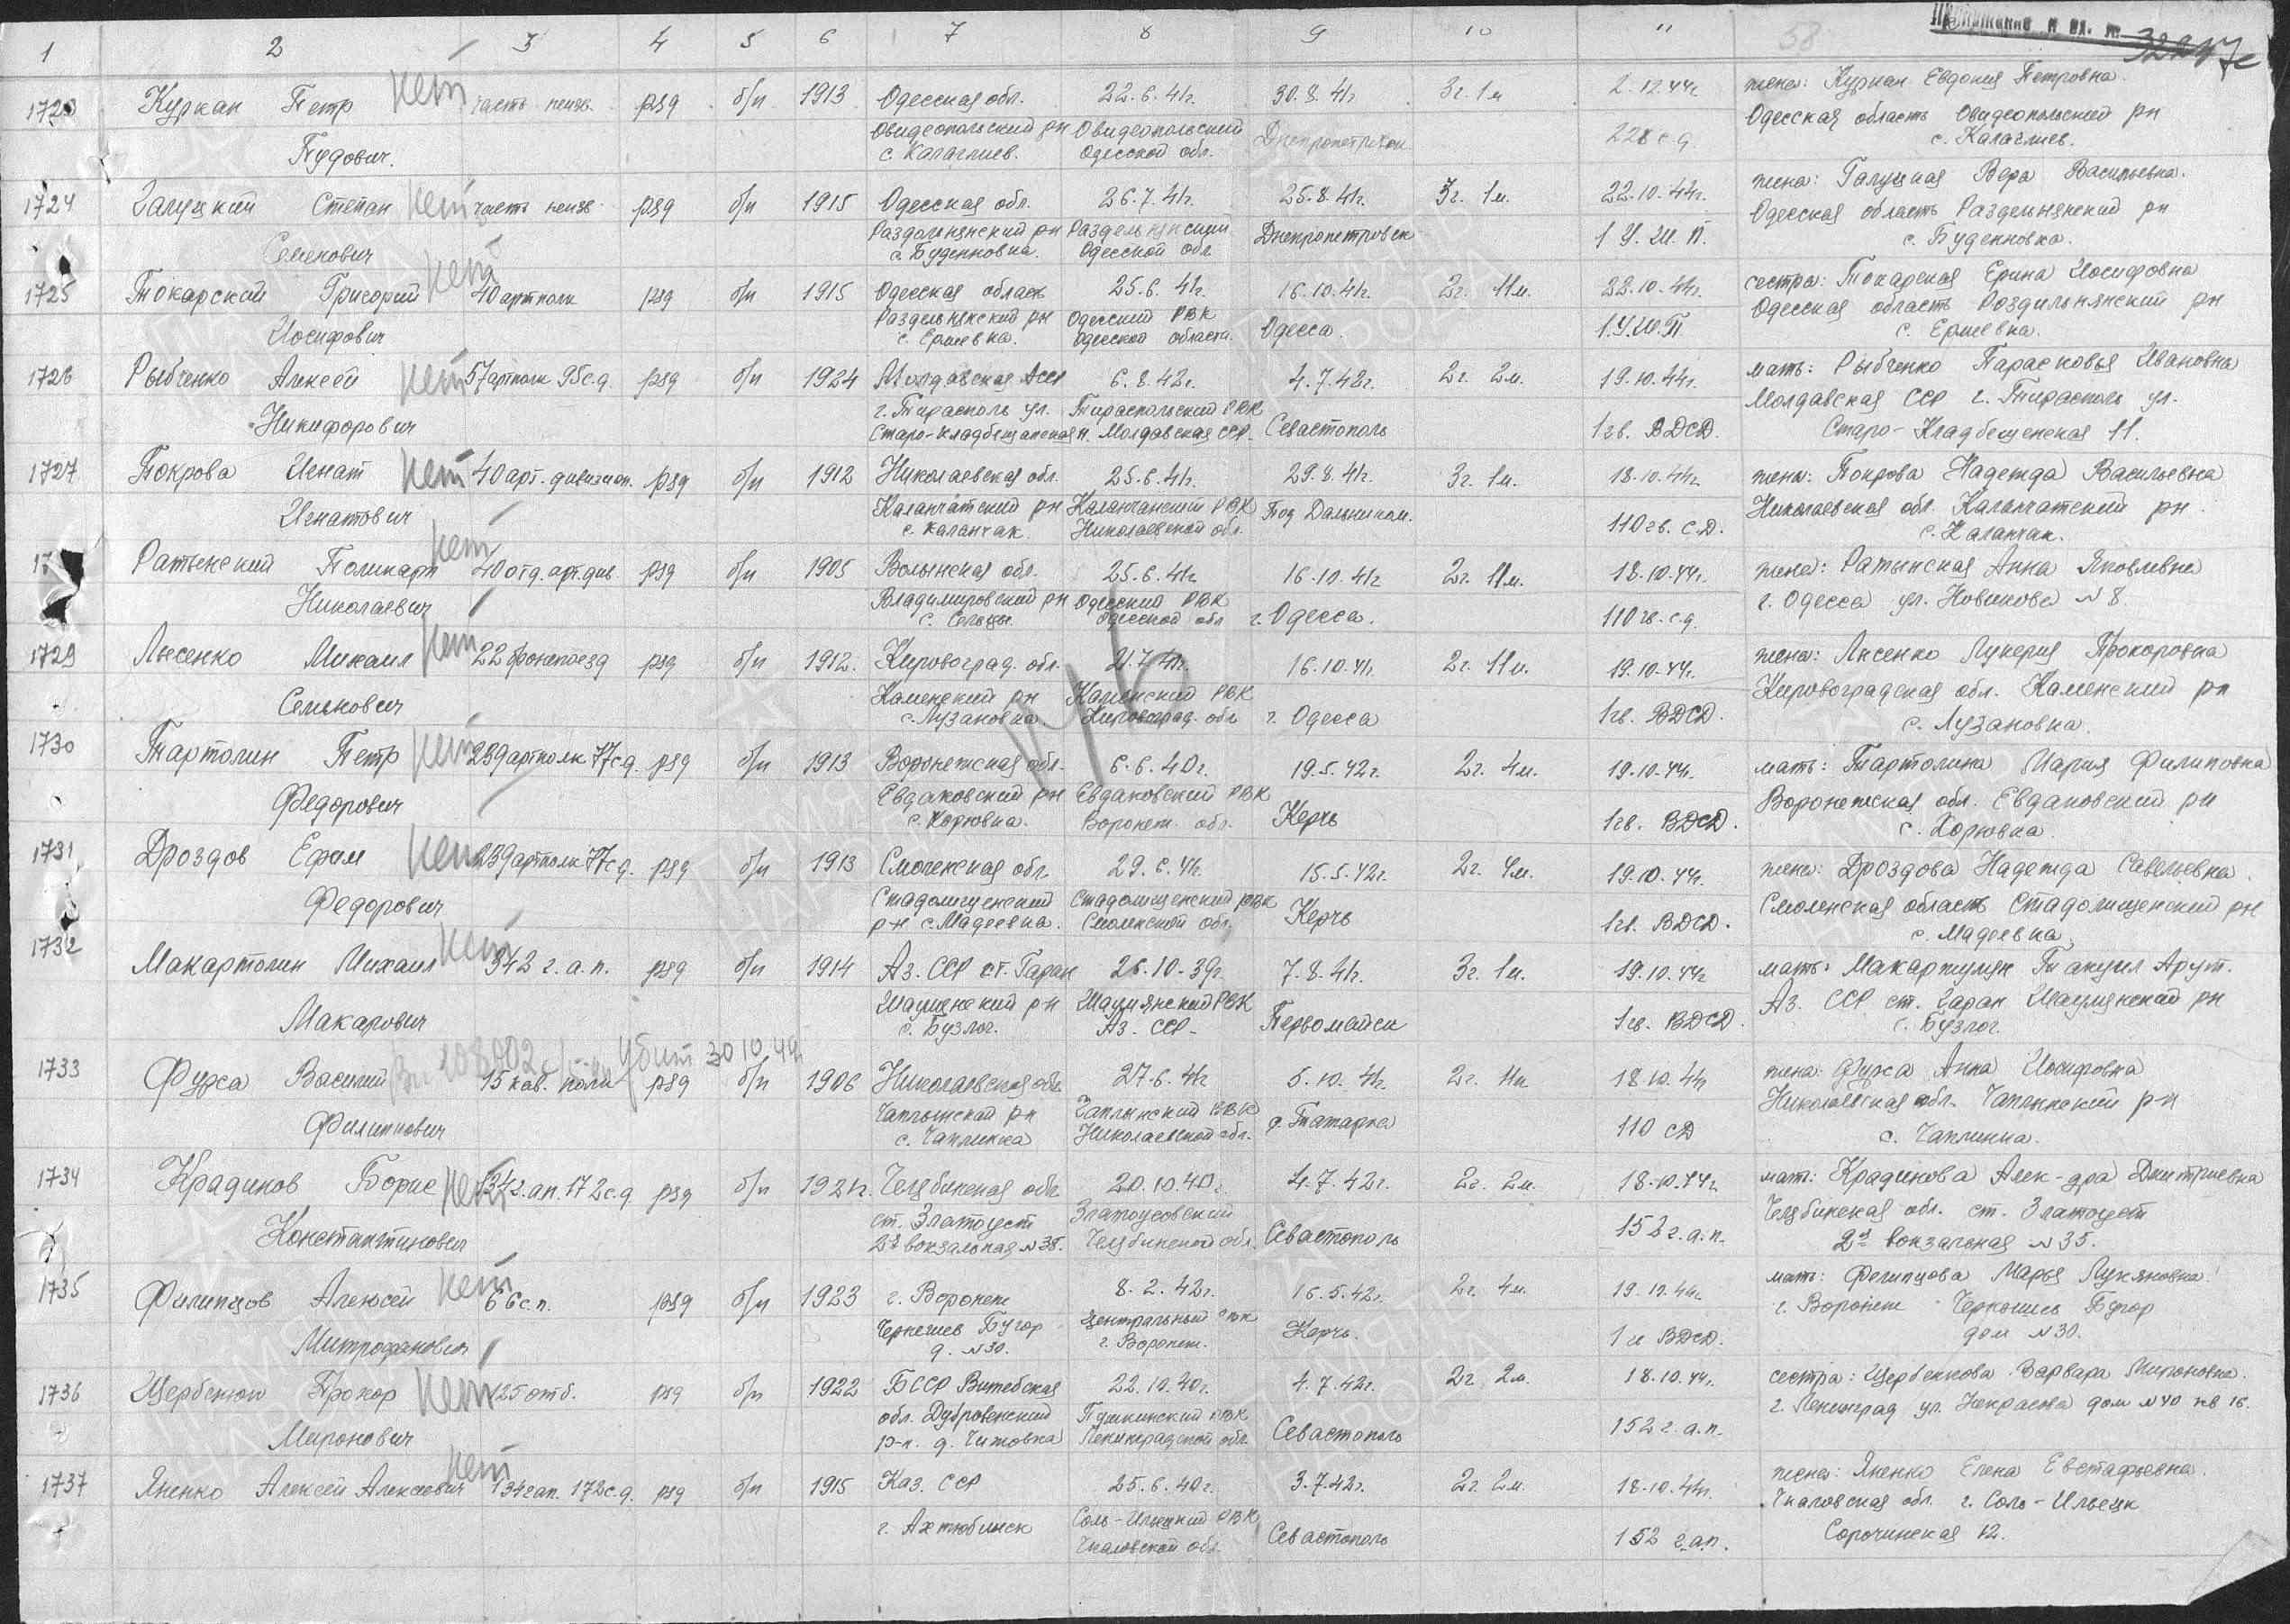 1 2 3 4 5 6 7 8 9 10 11
1723 Куркан Петр нет часть неизв. ряд б/п 1913 Одесская обл. 22.6.41г. 30.8.41г. 3г. 1м 2.12.44г жена: Куркан Евдокия Петровна
Тудович. Овидеопольский рн с. Калаглиев. Овидеопольский Одесской обл. Днепропетровск 228 с.д. Одесская область Овидеопольский рн
с. Калаглиев.
1724 Галуцкий Степан нет часть неизв. ряд б/п 1915 Одесская обл. 26.7.41г. 25.8.41г. 3г. 1м. 22.10.44г. жена: Галуцкая Вера Васильевна.
Семенович Раздельнянский рн с. Буденновка. Раздельнянский Одесской обл Днепропетровск 1 У.Ш.П. Одесская область Раздельнянский рн
с. Буденновка.
1725 Токарский Григорий нет 40 артполк ряд б/п 1915 Одесская область 25.6.41г. 16.10.41г. 2г. 11м. 22.10.44г. сестра: Токарская Ерина Иосифовна
Иосифович Раздельнянский рн с. Ермеевка. Одесский РВК Одесской области. Одесса. 1.У.Ш.П Одесская область Роздильнянский рн
с. Ермеевка.
1726 Рыбченко Алексей нет 57 артполк 95с.д. ряд б/п 1924 Молдавская АССР 6.8.42г. 4.7.42г. 2г. 2м. 19.10.44г. мать: Рыбченко Парасковья Ивановна
Никифорович г. Тирасполь ул. Старо-кладбещенская 11. Тираспольский РВК Молдавская ССР. Севастополь 1гв. ВДСД. Молдавская ССР г. Тирасполь ул.
Старо-Кладбещенская 11.
1727 Покрова Игнат нет 40 арт. дивизион. ряд б/п 1912 Николаевская обл. 25.6.41г. 29.8.41г. 3г. 1м. 18.10.44г жена: Покрова Надежда Васильевна
Игнатович Каланчатский рн с. Каланчак Каланчакский РВК Николаевской обл. Под Дальником. 110 гв. с.д. Николаевская обл. Каланчатский рн.
с. Каланчак.
17 Ратынский Поликарп нет 40 отд. арт. див. ряд б/п 1905 Волынская обл. 25.6.41г 16.10.41г 2г. 11м. 18.10.44г. жена: Ратынская Анна Яковлевна
Николаевич Владимировский рн с. Сельцы. Одесский РВК Одесской обл г. Одесса. 110 гв. с.д. г. Одесса ул. Новикова №8
1729 Лысенко Михаил нет 22 бронепоезд ряд б/п 1912. Кировоград. обл. 21.7.41г. 16.10.41г 2г. 11м. 19.10.44г. жена: Лысенко Лукерия Прокоровна
Семенович Каменский рн с. Лузановка. Каменский РВК Кировоград. обл г. Одесса 1гв. ВДСД. Кировоградская обл. Каменский рн
с. Лузановка.
1730 Тартолин Петр нет 239 артполк 77с.д. ряд б/п 1913 Воронежская обл. 6.6.40г. 19.5.42г. 2г. 4м. 19.10.44г. мать: Тартолина Мария Филиповна
Федорович Евдаковский рн с. Хорювка. Евдаковский РВК Воронеж. обл. Керчь 1гв. ВДСД. Воронежская обл. Евдаковский рн
с. Хорювка
1731 Дроздов Ефим нет 239 артполк 77с.д. ряд б/п 1913 Смоленская обл. 29.6.41г. 15.5.42г. 2г. 4м. 19.10.44г. жена: Дроздова Надежда Савельевна.
Федорович Стадолищенский р-н с. Мадеевка. Стадолищенский РВК Смоленской обл. Керчь 1гв. ВДСД. Смоленская область Стадолищенский рн
с. Мадеевка
1732 Макартолин Михаил нет 342 г.а.п. ряд б/п 1914 Аз. ССР ст. Гаран 26.10.39г. 7.8.41г. 3г. 1м. 19.10.44г мать: Макартумян Арут.
Макарович Шаумянский рн с. Бузлог. Шаумянский РВК Аз. ССР. Первомайск 1гв. ВДСД. Аз. ССР ст. Гаран Шаумянский рн
с. Бузлог
1733 Фудса Василий убит 30.10.44г 15 кав. полк ряд б/п 1906 Николаевская обл. 27.6.41г 5.10.41г. 2г. 11м 18.10.44г жена: Анна Иосифовна
Филиппович Чаплынский рн с. Чаплинка Чаплынский РВК Николаевской обл. д. Татарка 110 СД Николаевская обл. Чаплынский р-н
с. Чаплинка.
1734 Крадинов Борис нет 134 г.ап. 172 с.д ряд б/п 1921г. Челябинская обл 20.10.40г. 4.7.42г. 2г. 2м. 18.10.44г мат: Крадинова Алек-дра Дмитриевна
Константинович ст. Златоуст 2я вокзальная №35. Златоусовский Челябинской обл. Севастополь 152 г.а.п. Челябинская обл. ст. Златоуст
2я вокзальная №35.
1735 Филипцов Алексей нет 66 с.п. ряд б/п 1923 г. Воронеж 8.2.42г. 16.5.42г. 2г. 4м. 19.10.44г мать: Филипцова Марья Лукяновна.
Митрофанович Бугор д. №30. Центральный РВК г. Воронеж. Керчь. 1 гв ВДСД. г. Воронеж Бугор
дом №30.
1736 Щербенюк Прохор нет 125 отб. ряд б/п 1922 БССР Витебская 22.10.40г. 4.7.42г. 2г 2м. 18.10.44г. сестра: Щербенкова Варвара Мироновна.
Миронович обл. Дубровенский р-н. д. Читовка Пушкинский РВК Ленинградской обл. Севастополь 152 г.а.п. г. Ленинград ул. Некрасова дом №40 кв 16.
1737 Яненко Алексей Алексеевич нет 134 гап. 172с.д. ряд б/п 1915 Каз. ССР 25.6.40г. 3.7.42г. 2г. 2м. 18.10.44г. жена: Яненко Елена Евстафьевна.
г. Актюбинск Соль-Илецкий РВК Чкаловской обл. Севастополь 152 г.ап. Чкаловская обл. г. Соль-Илецк
Сорочинская 12.